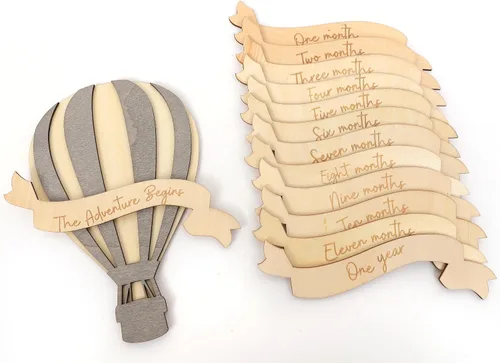 The Adventure Begins
One month
Two months
Three months
Four months
Five months
Six months
Seven months
Eight months
Nine months
Ten months
Eleven months
One year